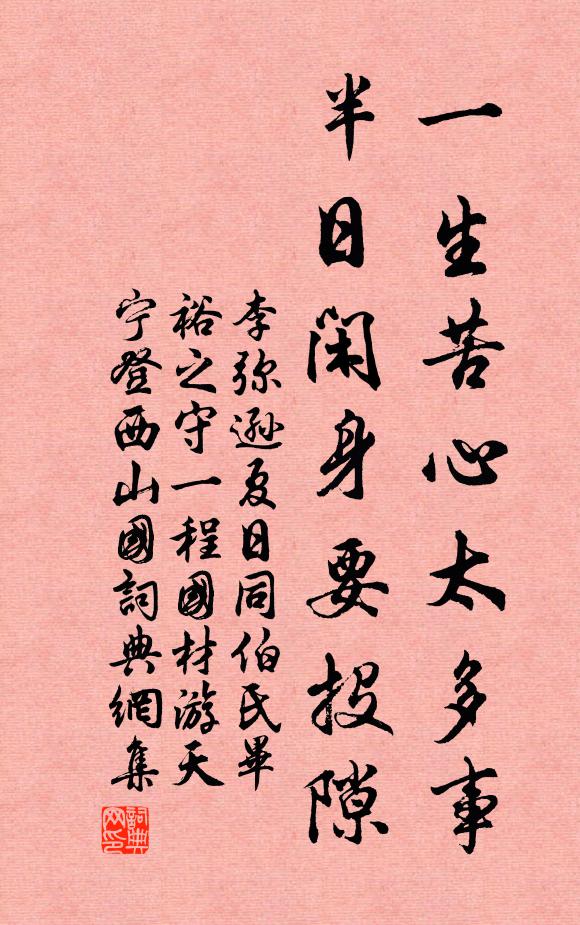 一生苦心太多事
半日閑身要投隙
李弥遜夏日同伯氏畢
裕之守一程國材游天
宁登西山國詞典網集
詞典网印